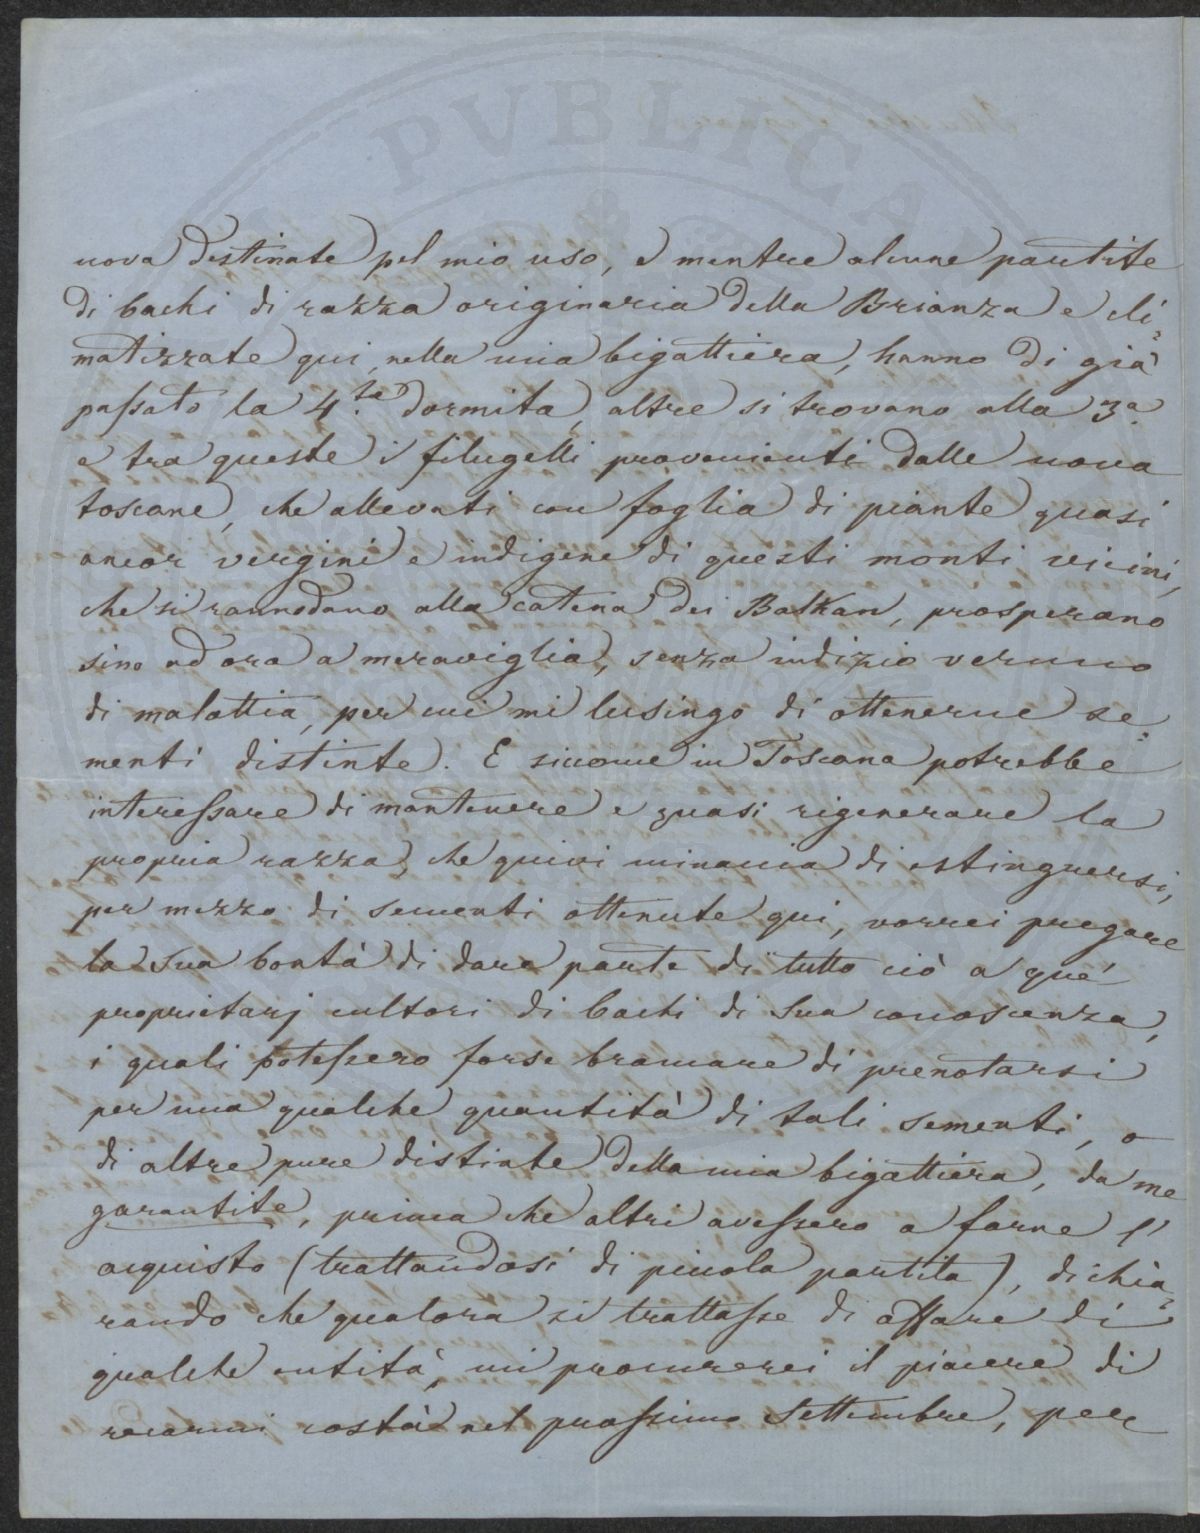 PVBLICA
uova destinate pel mio uso, e mentre alcune partite
di bachi di razza originaria della Brianza e cli=
matizzate qui, nella mia bigattiera, hanno di già
passato la 4.ta dormita, altre si trovano alla 3.a
e tra queste i filugelli provenienti dalle uova
toscane, che allevati con foglia di piante quasi
ancor vergini e indigene di questi monti vicini,
che si rannodano alla catena dei Balkan, prosperano
sino ad ora a meraviglia, senza indizio veruno
di malattia, per cui mi lusingo di ottenerne se=
menti distinte. E siccome in Toscana potrebbe
interessare di mantenere e quasi rigenerare la
propria razza, che quivi minaccia di estinguersi,
per mezzo di sementi ottenute qui, vorrei pregare
la Sua bontà di dare parte di tutto ciò a que'
proprietarj cultori di bachi di Sua conoscenza,
i quali potessero forse bramare di prenotarsi
per una qualche quantità di tali sementi, o
di altre pure distinte della mia bigattiera, da me
garantite, prima che altri avessero a farne l'
acquisto (trattandosi di piccola partita), dichia=
rando che qualora si trattasse di affare di
qualche entità, mi procurerei il piacere di
recarmi costà nel prossimo Settembre, per